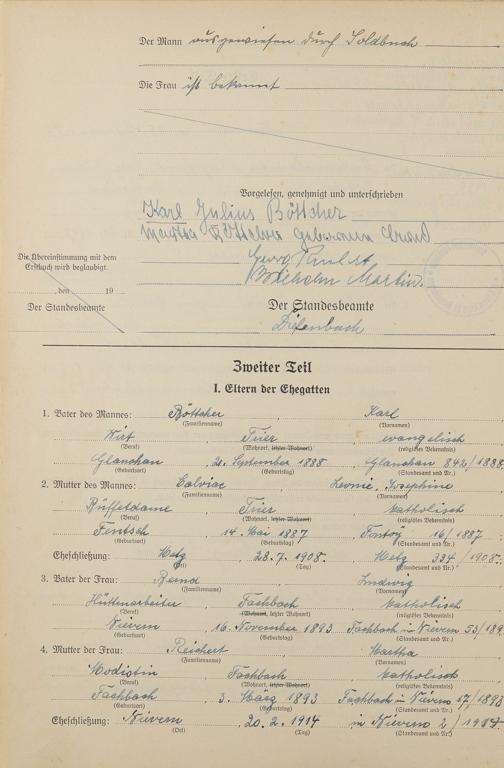 Der Mann ausgewiesen durch Soldbuch
Die Frau ist bekannt
Vorgelesen, genehmigt und unterschrieben
Karl Julius Böttcher
Martha Böttcher geborene
Georg
Wilhelm Martin.
Die Übereinstimmung mit dem
Erstbuch wird beglaubigt.
, den 19
Der Standesbeamte
Der Standesbeamte
Diefenbach
Zweiter Teil
I. Eltern der Ehegatten
1. Vater des Mannes: Böttcher Karl
(Familienname) (Vornamen)
Wirt , Trier evangelisch
(Beruf) (Wohnort, letzter Wohnort) (religiöses Bekenntnis)
Glauchau , 21. September 1888 Glauchau 842/1888.
(Geburtsort) (Geburtstag) (Standesamt und Nr.)
2. Mutter des Mannes: Calviac , Leonie, Josephine
(Familienname) (Vornamen)
Büffetdame , Trier katholisch
(Beruf) (Wohnort, letzter Wohnort) (religiöses Bekenntnis)
Fentsch , 14. Mai 1887 Fontoy 16/1887
(Geburtsort) (Geburtstag) (Standesamt und Nr.)
Eheschließung: Metz , 28.7.1908. Metz 334/1908.
(Ort) (Tag) (Standesamt und Nr.)
3. Vater der Frau: Bernd , Ludwig
(Familienname) (Vornamen)
Hüttenarbeiter , Fachbach katholisch
(Beruf) (Wohnort, letzter Wohnort) (religiöses Bekenntnis)
Nievern , 16. November 1893 Fachbach in Nievern 53/189
(Geburtsort) (Geburtstag) (Standesamt und Nr.)
4. Mutter der Frau: Reichert , Martha
(Familienname) (Vornamen)
Modistin , Fachbach katholisch
(Beruf) (Wohnort, letzter Wohnort) (religiöses Bekenntnis)
Fachbach , 3. März 1893 Fachbach in Nievern 17/1893
(Geburtsort) (Geburtstag) (Standesamt und Nr.)
Eheschließung: Nievern , 20.2.1914 in Nievern 2/1914
(Ort) (Tag) (Standesamt und Nr.)